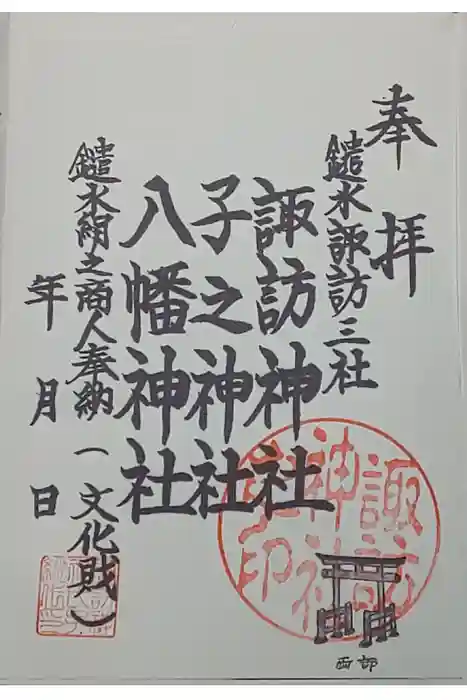 奉拝
鑓水諏訪三社
諏訪神社
子之神社
八幡神社
鑓水絹之商人奉納(文化財)
年 月 日
諏訪
神社
西部